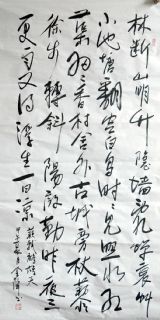 林断山明竹隐墙乱蝉衰草
小池塘翻空白鸟时时见照水红
蕖细细香村舍外古城旁杖藜
徐步转斜阳殷勤昨夜三
更雨又得浮生一日凉
苏轼鹧鸪天